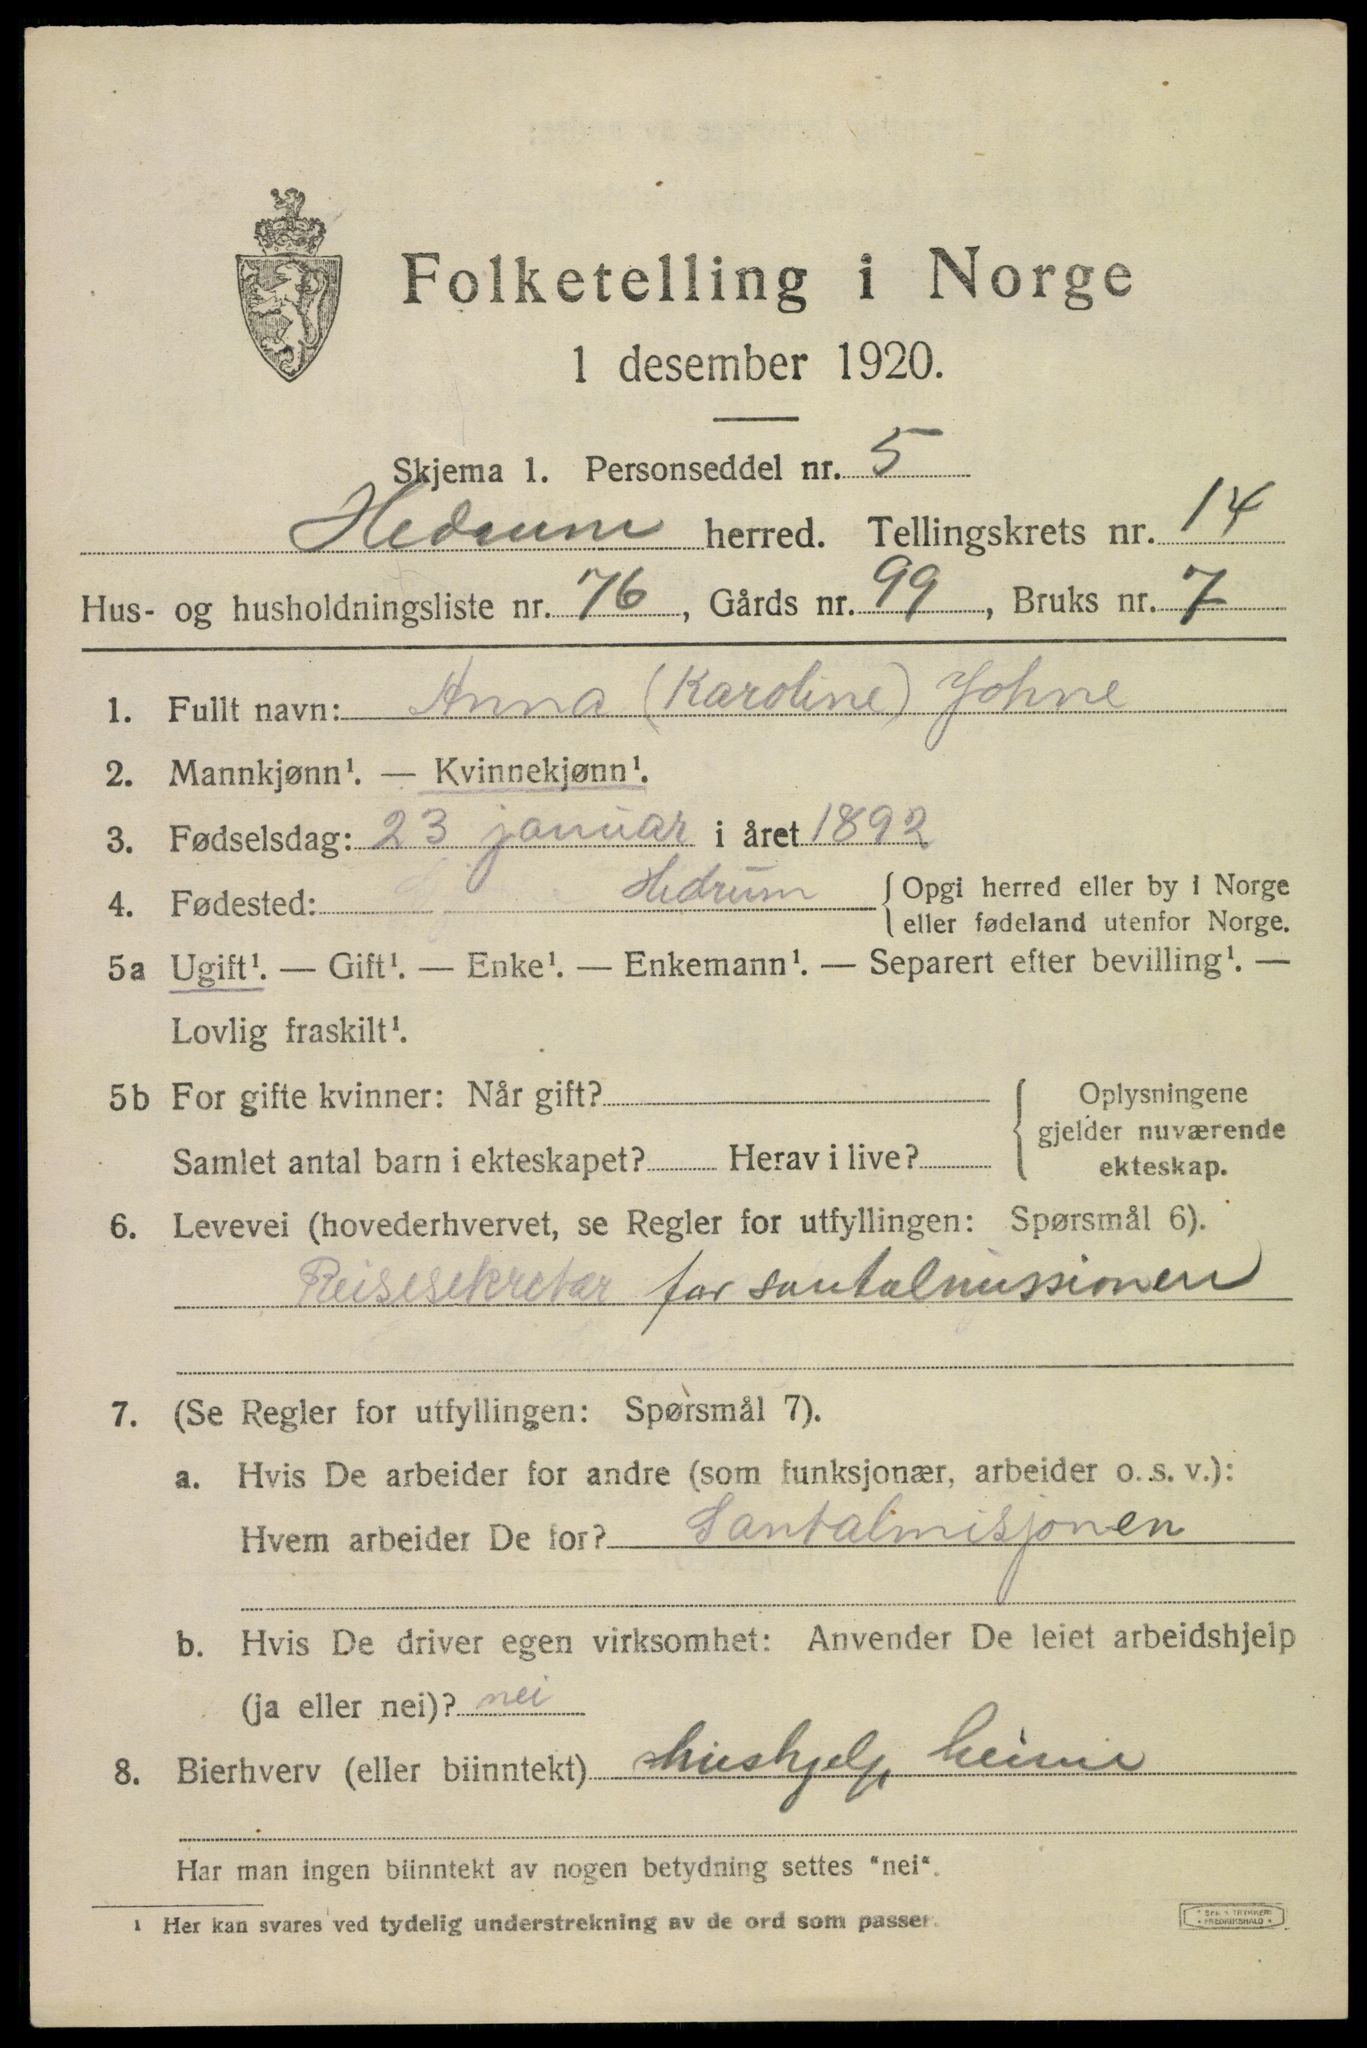 Folketelling i Norge
1 desember 1920.
Skjema 1. Personseddel nr. 5
Hedrum herred. Tellingskrets nr. 14
Hus- og husholdningsliste nr. 76, Gårds nr. 99, Bruks nr. 7
1. Fullt navn: Anna (Karoline) Johne
2. Mannkjønn¹. — Kvinnekjønn¹.
3. Fødselsdag: 23 januar i året 1892
4. Fødested: Hedrum { Opgi herred eller by i Norge
eller fødeland utenfor Norge.
5a Ugift¹. — Gift¹. — Enke¹. — Enkemann¹. — Separert efter bevilling¹. —
Lovlig fraskilt¹.
5b For gifte kvinner: Når gift? { Oplysningene
gjelder nuværende
Samlet antal barn i ekteskapet? Herav i live? ekteskap.
6. Levevei (hovederhvervet, se Regler for utfyllingen: Spørsmål 6).
Reisesekretær for santalmissionen
7. (Se Regler for utfyllingen: Spørsmål 7).
a. Hvis De arbeider for andre (som funksjonær, arbeider o. s. v.):
Hvem arbeider De for? Santalmisjonen
b. Hvis De driver egen virksomhet: Anvender De leiet arbeidshjelp
(ja eller nei)? nei
8. Bierhverv (eller biinntekt) hushjelp heime
Har man ingen biinntekt av nogen betydning settes "nei".
¹ Her kan svares ved tydelig understrekning av de ord som passer.
FREDRIKSHALD